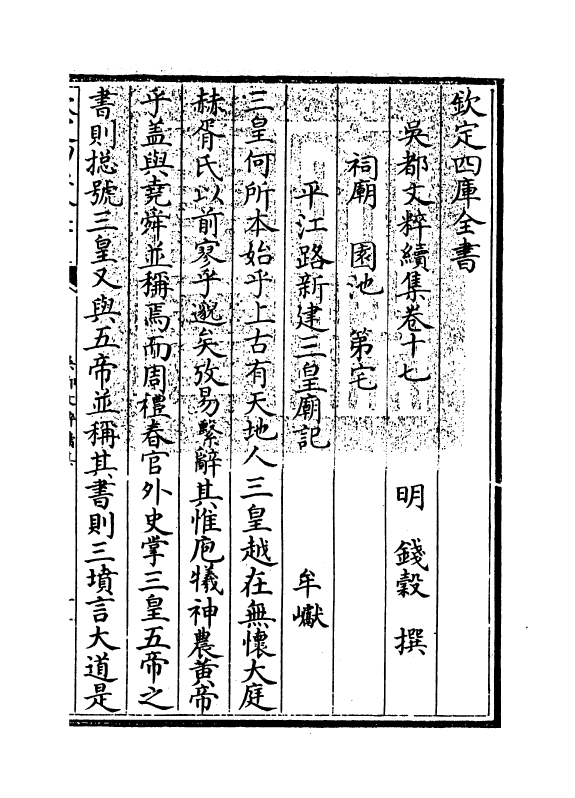 欽定四庫全書
吳都文粹續集卷十七
明 錢穀 撰
祠廟 園池 第宅
平江路新建三皇廟記 牟巘
三皇何所本始乎上古有天地人三皇越在無懷大庭
赫胥氏以前寥乎邈矣攷易繫辭其惟庖犧神農黃帝
乎葢與堯舜並稱焉而周禮春官外史掌三皇五帝之
書則摠號三皇又與五帝並稱其書則三墳言大道是